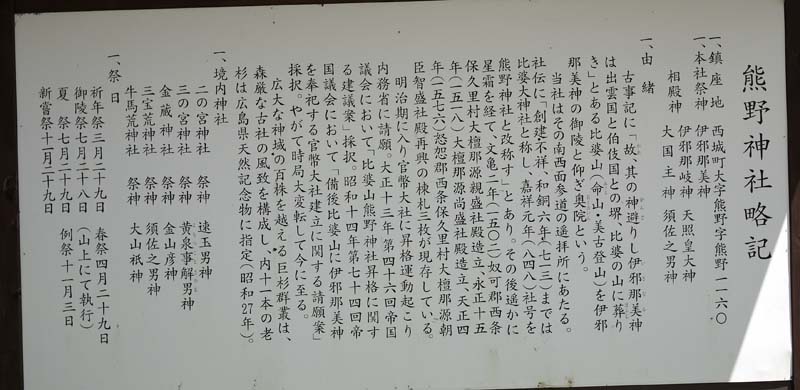 熊野神社略記
一、鎮座地　西城町大字熊野字熊野一一六〇
一、本社祭神　伊邪那美神
相殿神　伊邪那岐神　天照皇大神
大国主神　須佐之男神
一、由緒
古事記に「故、其の神避りし伊邪那美神
は出雲国と伯伎国との堺、比婆の山に葬り
き」とある比婆山(命山・美古登山)を伊邪
那美神の御陵と仰ぎ奥院という。
当社はその南西面参道の遥拝所にあたる。
社伝に「創建不祥、和銅六年(七一三)までは
比婆大神社と称し、嘉祥元年(八四八)社号を
熊野神社と改称す」とあり。その後遥かに
星霜を経て、文亀二年(一五〇二)奴可郡西条
保久里村大檀那源親盛社殿造立、永正十五
年(一五一八)大檀那源尚盛社殿造立、天正四
年(一五七六)恣恕郡西条保久里村大檀那源朝
臣智盛社殿再興の棟札三枚が現存している。
明治期に入り官幣大社に昇格運動起こり
内務省に請願。大正十三年第四十六回帝国
議会において「比婆山熊野神社昇格に関す
る建議案」採択。昭和十四年第七十四回帝
国議会において「備後比婆山に伊邪那美神
を奉祀する官幣大社建立に関する請願案」
採択。やがて時局大変転して今に至る。
広大な神域の百株を越える巨杉群叢は、
森厳な古社の風致を構成し、内十一本の老
杉は広島県天然記念物に指定(昭和27年)。
一、境内神社
二の宮神社　祭神　速玉男神
三の宮神社　祭神　黄泉事解男神
金蔵神社　祭神　金山彦神
三宝荒神社　祭神　須佐之男神
牛馬荒神社　祭神　大山祇神
一、祭日
祈年祭三月二十九日　春祭四月二十九日
御陵祭七月二十八日(山上にて執行)
夏祭七月二十九日　例祭十一月三日
新嘗祭十一月二十九日